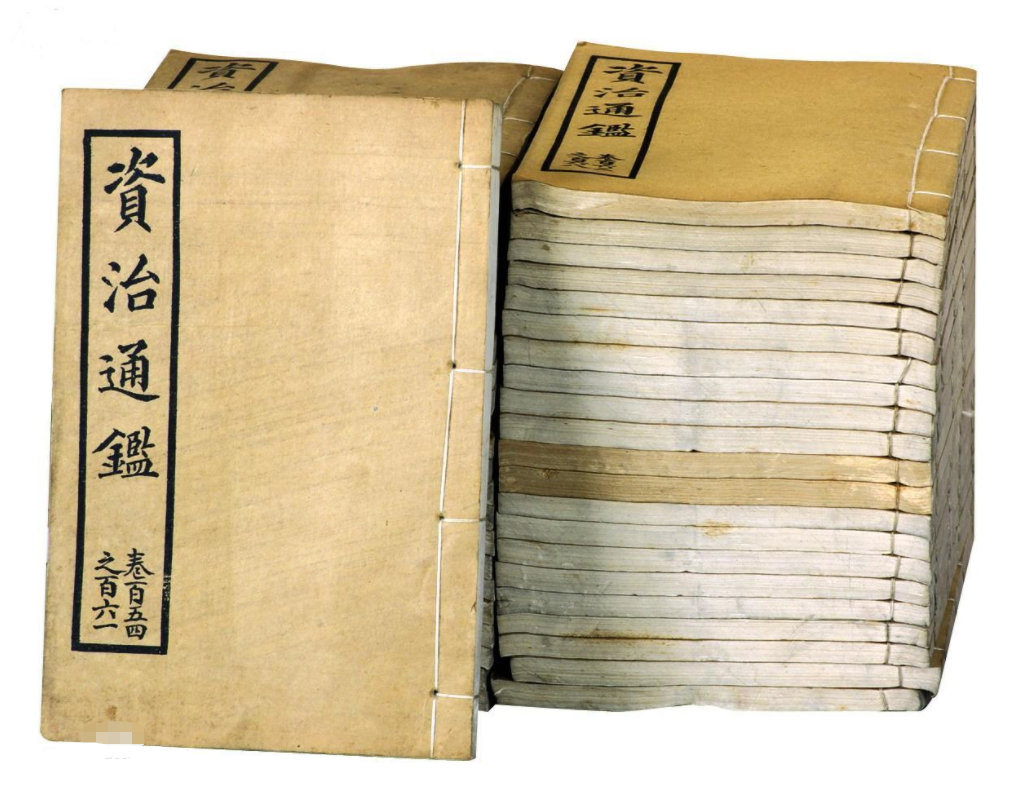 資治通鑑
卷百五四
之百六一
資治
資治通鑑